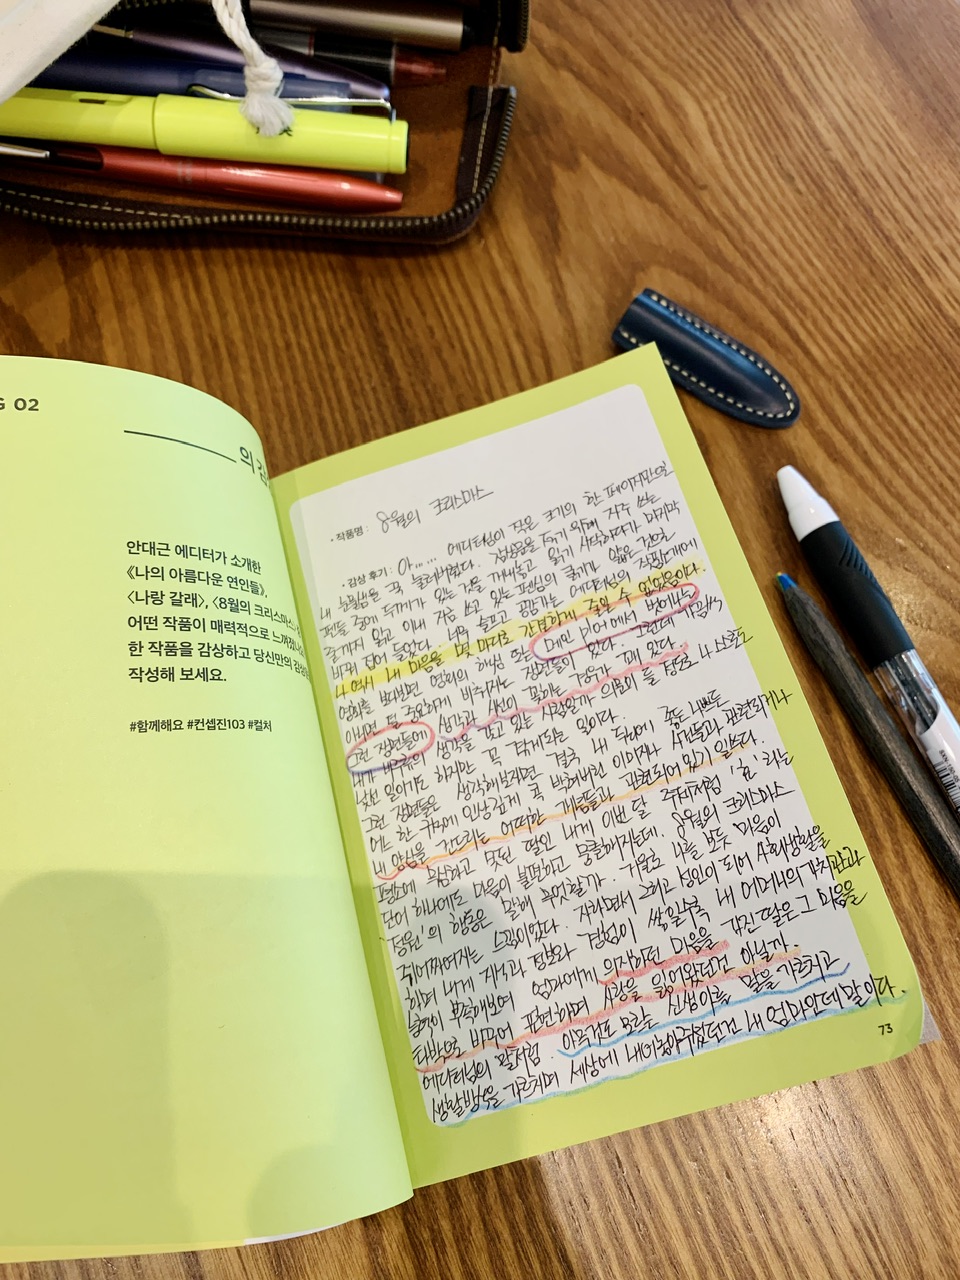 G 02
의 감
안대근 에디터가 소개한
《나의 아름다운 연인들》,
〈나랑 갈래〉, 〈8월의 크리스마스〉
어떤 작품이 매력적으로 느껴졌나요
한 작품을 감상하고 당신만의 감상
작성해 보세요.
#함께해요 #컨셉진103 #컬처
• 작품명 : 8월의 크리스마스
• 감상 후기 : 아.... 에디터님이 작은 크기의 한 페이지만으로
내 눈물샘을 꾹 눌러버렸다. 감상문을 적기 위해 자주 쓰는
펜들 중에 두께가 있는 것을 꺼내놓고 읽기 시작하다가 마지막
줄까지 읽고 이내 지금 쓰고 있는 펜의 굵기가 얇은 것으로
바꿔 집어 들었다. 너무 슬프고 공감가는 에디터님의 작품 에
나 역시 내 마음을 몇 마디로 간결하게 줄일 수 없었음이다.
영화를 보다보면 영화의 하님 또는 메인 피어에서 벗어난
아니면 덜 중요하게 비춰지는 장면들이 있다. 그런데 가끔씩
그런 장면들에 생각과 시선이 꽂히는 경우가 꽤 있다.
내가 이런 생각을 갖고 있는 사람일까 의문이 들 정도로 나 스스로
낯선 일이기도 하지만 꼭 겪게되는 일이다.
그런 장면들은 생각해보자면 결국 내 뒤에 좋든 나쁘든
어느 한 구석에 인상깊게 콕 박혀버린 이미지나 사건들과 관련되거나
내 양심을 건드리는 어떠한 개념들과 관련되어 있기 일쑤다.
평소에 무심하고 못된 딸인 내게 이번 달 주제처럼 '효' 라는
단어 하나에도 마음이 불편하고 뭉클해지는데, 8월의 크리스마스
'정원'의 행동은 말해 무엇할까. 거울로 나를 보듯 마음이
쥐어짜여지는 느낌이었다. 자라면서 그리고 성인이 되어 사회생활을
하며 내게 지식과 정보와 경험이 쌓일수록 내 어머니의 가치관과
능력이 부족해보여 엄마에게 의지하던 마음을 감진 딸은 그 마음을
타박으로 바꾸어 표현하며 사랑을 잃어왔던건 아닐까.
에디터님의 말처럼. 아무것도 모르는 신생아를 말을 가르치고
생활방식을 가르치며 세상에 내이끌어주셨던건 내 엄마인데 말이다.
73